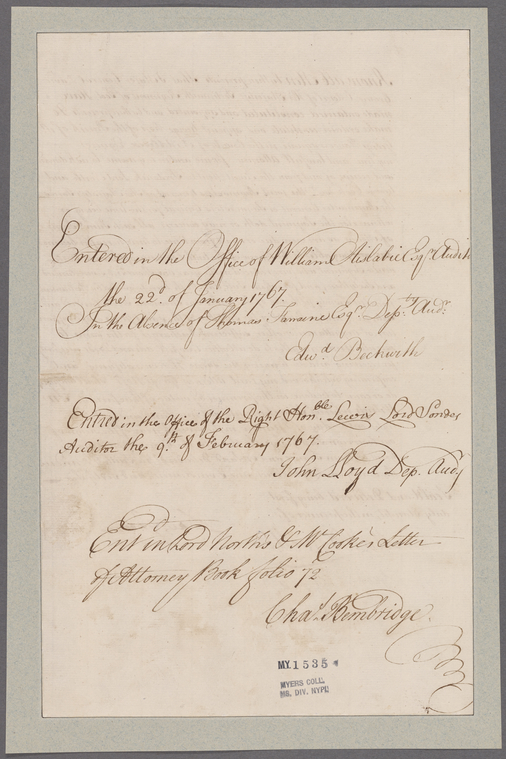 Entered in the Office of William Aislabie Esqr. Audit
the 22d. of January 1767.
In the Absence of Thomas Esqr. Depty. Audr.
Edwd. Beckwith
Entred in the Office of the Right Honble. Lewis Lord Sondes
Auditor the 9th. of February 1767.
John Lloyd Dep. Audr
Entd. in Lord North's & Mr Cooke's Letter
of Attorney Book folio 72
Chas. Bembridge.
MY 1535
MYERS COLL.
MS. DIV. NYPL